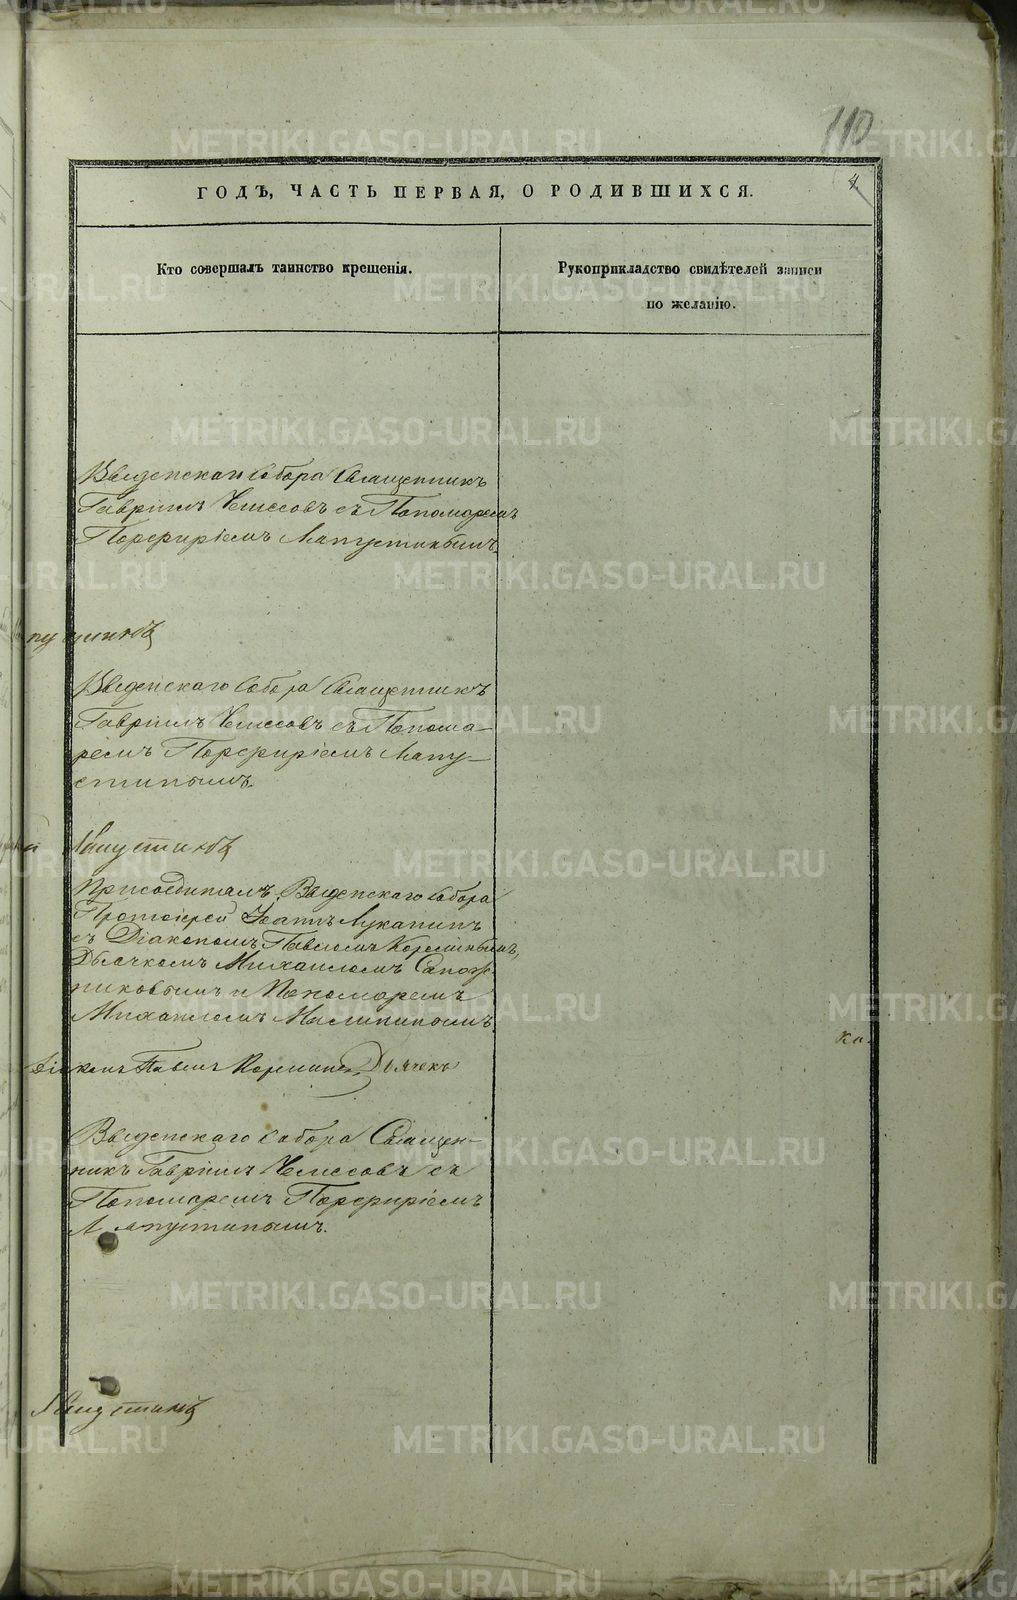 110
4.
ГОДЪ, ЧАСТЬ ПЕРВАЯ, О РОДИВШИХСЯ.
Кто совершалъ таинство крещенія.
Рукоприкладство свидѣтелей записи
по желанію.
Введенскаго Собора Священникъ
Гавріилъ Чемесовъ съ Пономаремъ
Порфиріемъ Лапустинымъ
Введенскаго Собора Священникъ
Гавріилъ Чемесовъ съ Понома-
ремъ Порфиріемъ Лапу-
стинымъ.
Лапустинъ
Присоединалъ Введенскаго Собора
Протоіерей Іоаннъ Луканинъ
съ Діакономъ Павломъ
Дьячкомъ Михаиломъ Сапож-
никовымъ и Пономаремъ
Михаиломъ Малининымъ.
Діаконъ Павелъ Дьячекъ
Введенскаго Собора Священ-
никъ Гавріилъ Чемесовъ съ
Пономаремъ Порфиріемъ
Лапустинымъ.
Лапустинъ
METRIKI.GASO-URAL.RU